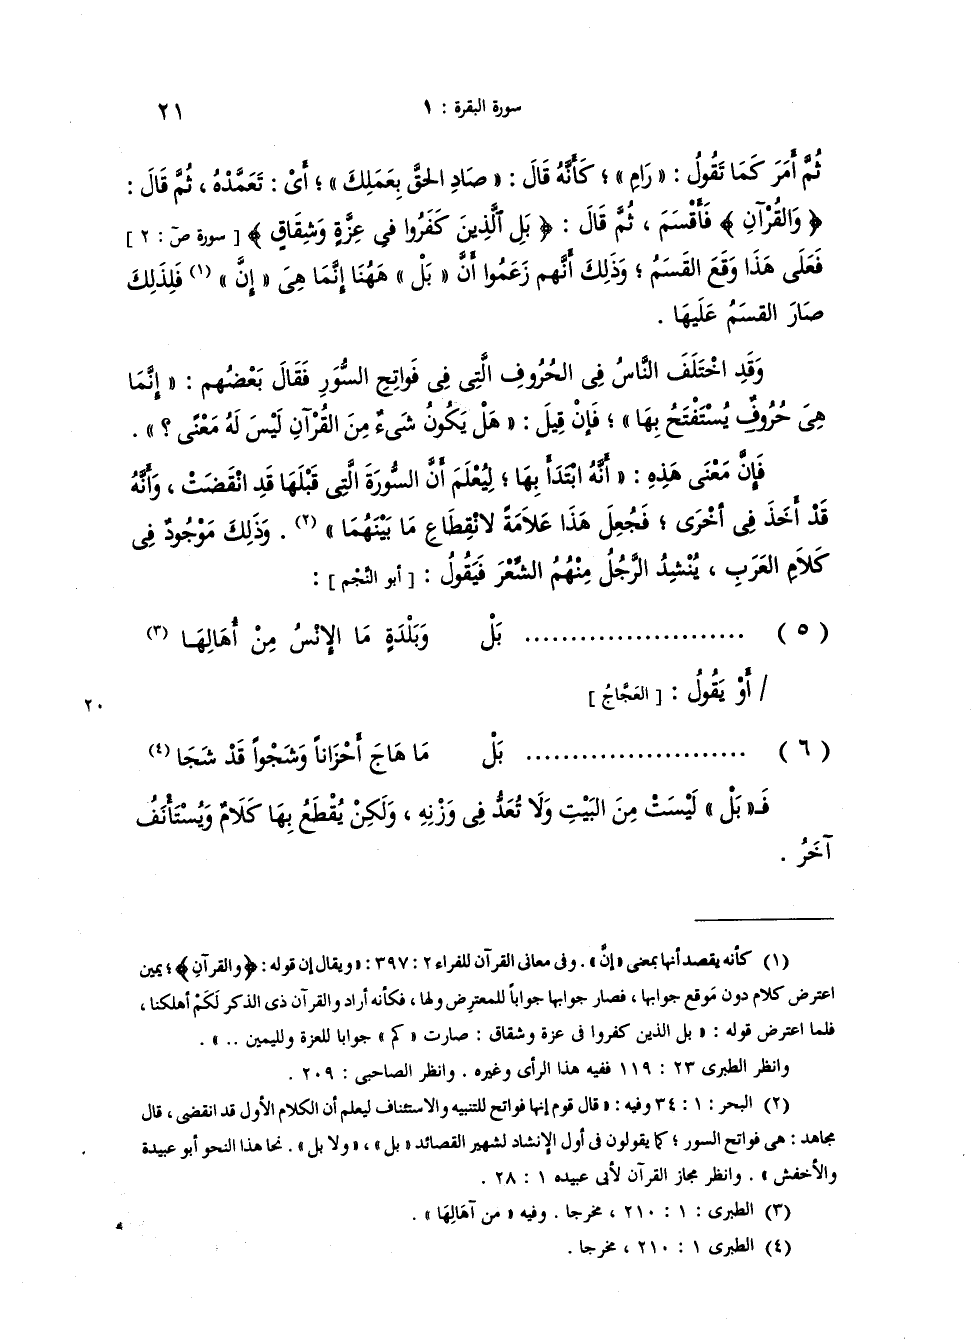 سورة البقرة : ١
٢١
ثُمَّ أَمَرَ كَمَا تَقُولُ : « رَامِ » ؛ كَأَنَّهُ قَالَ : « صَادِ الحَقَّ بِعَمَلِكَ » ؛ أَىْ : تَعَمَّدْهُ ، ثُمَّ قَالَ :
﴿ وَالقُرْآنِ ﴾ فَأَقْسَمَ ، ثُمَّ قَالَ : ﴿ بَلِ ٱلَّذِينَ كَفَرُوا فِى عِزَّةٍ وَشِقَاقٍ ﴾ [ سورة صۤ : ٢ ]
فَعَلَى هَذَا وَقَعَ القَسَمُ ؛ وَذَلِكَ أَنَّهم زَعَمُوا أَنَّ « بَلْ » هَهُنَا إِنَّمَا هِىَ « إِنَّ » (١) فَلِذَلِكَ
صَارَ القسَمُ عَلَيهَا .
وَقَدِ اخْتَلَفَ النَّاسُ فِى الحُرُوفِ الَّتِى فِى فَوَاتِحِ السُّوَرِ فَقَالَ بَعْضُهم : « إِنَّمَا
هِىَ حُرُوفٌ يُسْتَفْتَحُ بِهَا » ؛ فَإِنْ قِيلَ : « هَلْ يَكُونُ شَىءٌ مِنَ القُرْآنِ لَيْسَ لَهُ مَعْنًى ؟ » .
فَإِنَّ مَعْنَى هَذِهِ : « أَنَّهُ ابْتَدَأَ بِهَا ؛ لِيُعْلَمَ أَنَّ السُّورَةَ الَّتِى قَبْلَهَا قَدِ انْقَضَتْ ، وَأَنَّهُ
قَدْ أَخَذَ فِى أخْرَى ؛ فَجُعِلَ هَذَا عَلاَمَةً لانْقِطَاعِ مَا بَيْنَهُمَا » (٢) . وَذَلِكَ مَوْجُودٌ فِى
كَلاَمِ العَرَبِ ، يُنْشِدُ الرَّجُلُ مِنْهُمُ الشِّعْرَ فَيَقُولُ : [ أبو النَّجْم ] :
( ٥ ) ........................ بَلْ وَبَلْدَةٍ مَا الإِنْسُ مِنْ أُهَالِهَـا (٣)
/ أَوْ يَقُولُ : [ العَجَّاجُ ]
٢٠
( ٦ ) ........................ بَلْ مَا هَاجَ أَحْزَاناً وَشَجْواً قَدْ شَجَا (٤)
فَـ« بَلْ » لَيْسَتْ مِنَ البَيْتِ وَلَا تُعَدُّ فِى وَزْنِهِ ، وَلَكِنْ يُقْطَعُ بِهَا كَلَامٌ وَيُسْتَأْنَفُ
آخَرُ .
(١) كأنه يقصد أنها بمعنى « إنَّ » . وفى معانى القرآن للفراء ٢ : ٣٩٧ : « ويقال إن قوله : ﴿ والقرآنِ ﴾ ؛ يمين
اعترض كلام دون مَوقع جوابها ، فصار جوابها جواباً للمعترِض ولها ، فكأنه أراد والقرآن ذى الذكر لَكَمْ أهلكنا ،
فلما اعترض قوله : « بل الذين كفروا فى عزة وشقاق : صارت « كم » جوابا للعزة ولليمين .. » .
وانظر الطبرى ٢٣ : ١١٩ ففيه هذا الرأى وغيره . وانظر الصاحبى : ٢٠٩ .
(٢) البحر : ١ : ٣٤ وفيه : « قال قوم إنها فواتح للتنبيه والاستئناف ليعلم أن الكلام الأول قد انقضى ، قال
مجاهد : هى فواتح السور ؛ كما يقولون فى أول الإنشاد لشهير القصائد « بل » ، « ولا بل » . نحا هذا النحو أبو عبيدة
والأخفش » . وانظر مجاز القرآن لأبى عبيده ١ : ٢٨ .
(٣) الطبرى : ١ : ٢١٠ ، مخرجا . وفيه « من آهَالِهَا » .
(٤) الطبرى ١ : ٢١٠ ، مخرجا .